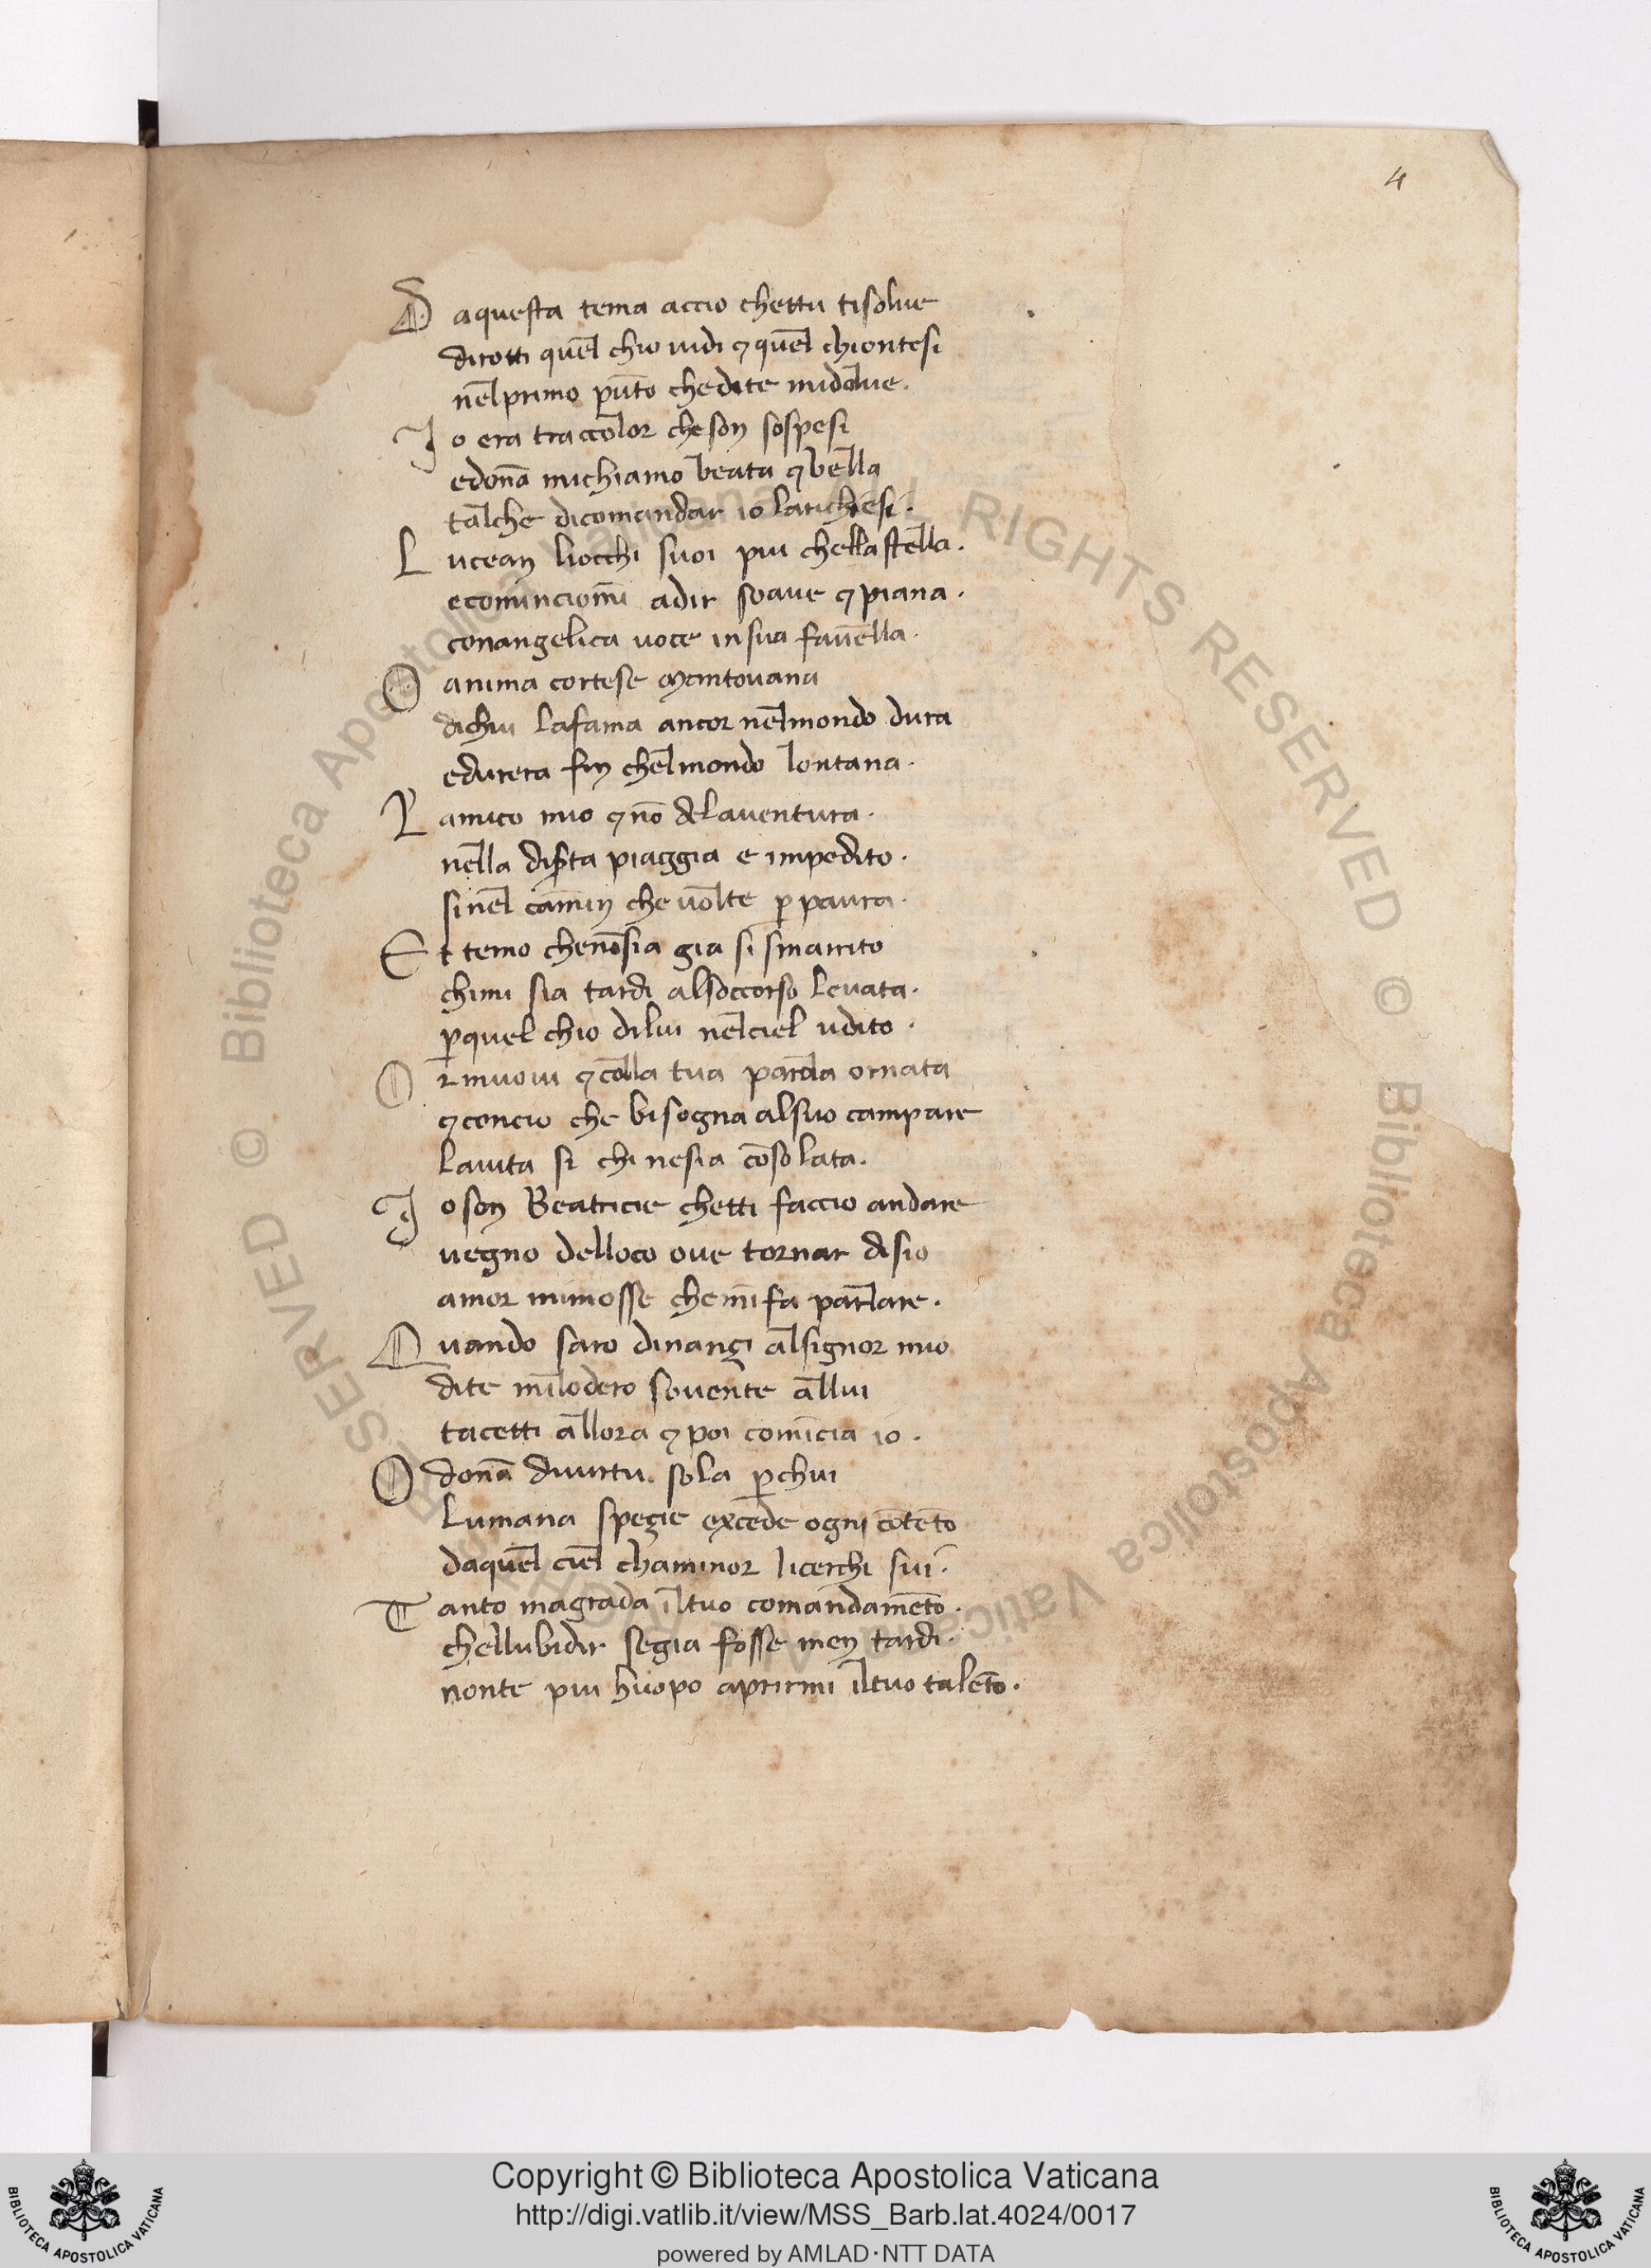 4
D aquesta tema accio chettu tisolue
dirotti quel chio uidi ⁊ quel chiontesi
nelprimo pūto chedite midolue.
I o era traccolor cheson sospesi
edonā michiamo beata ⁊ bella
talche dicomandar io larichiesi.
L ucean liocchi suoi piu chella stella.
ecominciomi adir soaue ⁊ piana.
conangelica uoce insua fauella.
O anima cortese mantouana
dichui lafama ancor nelmondo dura
edurera fin chelmondo lontana.
L amico mio ⁊ nō delauentura.
nella diserta piaggia e impedito.
sinel camin che uolte ꝑ paura.
E t temo chenōsia gia si smarrito
chimi sia tardi alsoccorso leuata.
ꝑquel chio dilui nelciel udito.
O rmuoui ⁊ colla tua parola ornata
⁊ concio che bisogna alsuo campare
laiuta si chi nesia cōsolata.
I o son Beatricie chetti faccio andare
uegno delloco oue tornar disio
amor mimosse chemifa parlare.
Q uando saro dinançi alsignor mio
dite milodero souente allui
tacetti allora ⁊ poi comīcia io.
O donā diuirtu. sola ꝑ chui
lumana spegie excede ogni cōtēto
daquel ciel chaminor licerchi sui.
T anto magrada iltuo comandamēto.
chellubidir segia fosse men tardi.
nonte piu huopo aprirmi iltuo talēto.
Biblioteca Apostolica Vaticana ALL RIGHTS RESERVED ©
Biblioteca Apostolica Vaticana
RESERVED ©
Copyright © Biblioteca Apostolica Vaticana
http://digi.vatlib.it/view/MSS_Barb.lat.4024/0017
powered by AMLAD·NTT DATA
BIBLIOTECA APOSTOLICA VATICANA
BIBLIOTECA APOSTOLICA VATICANA